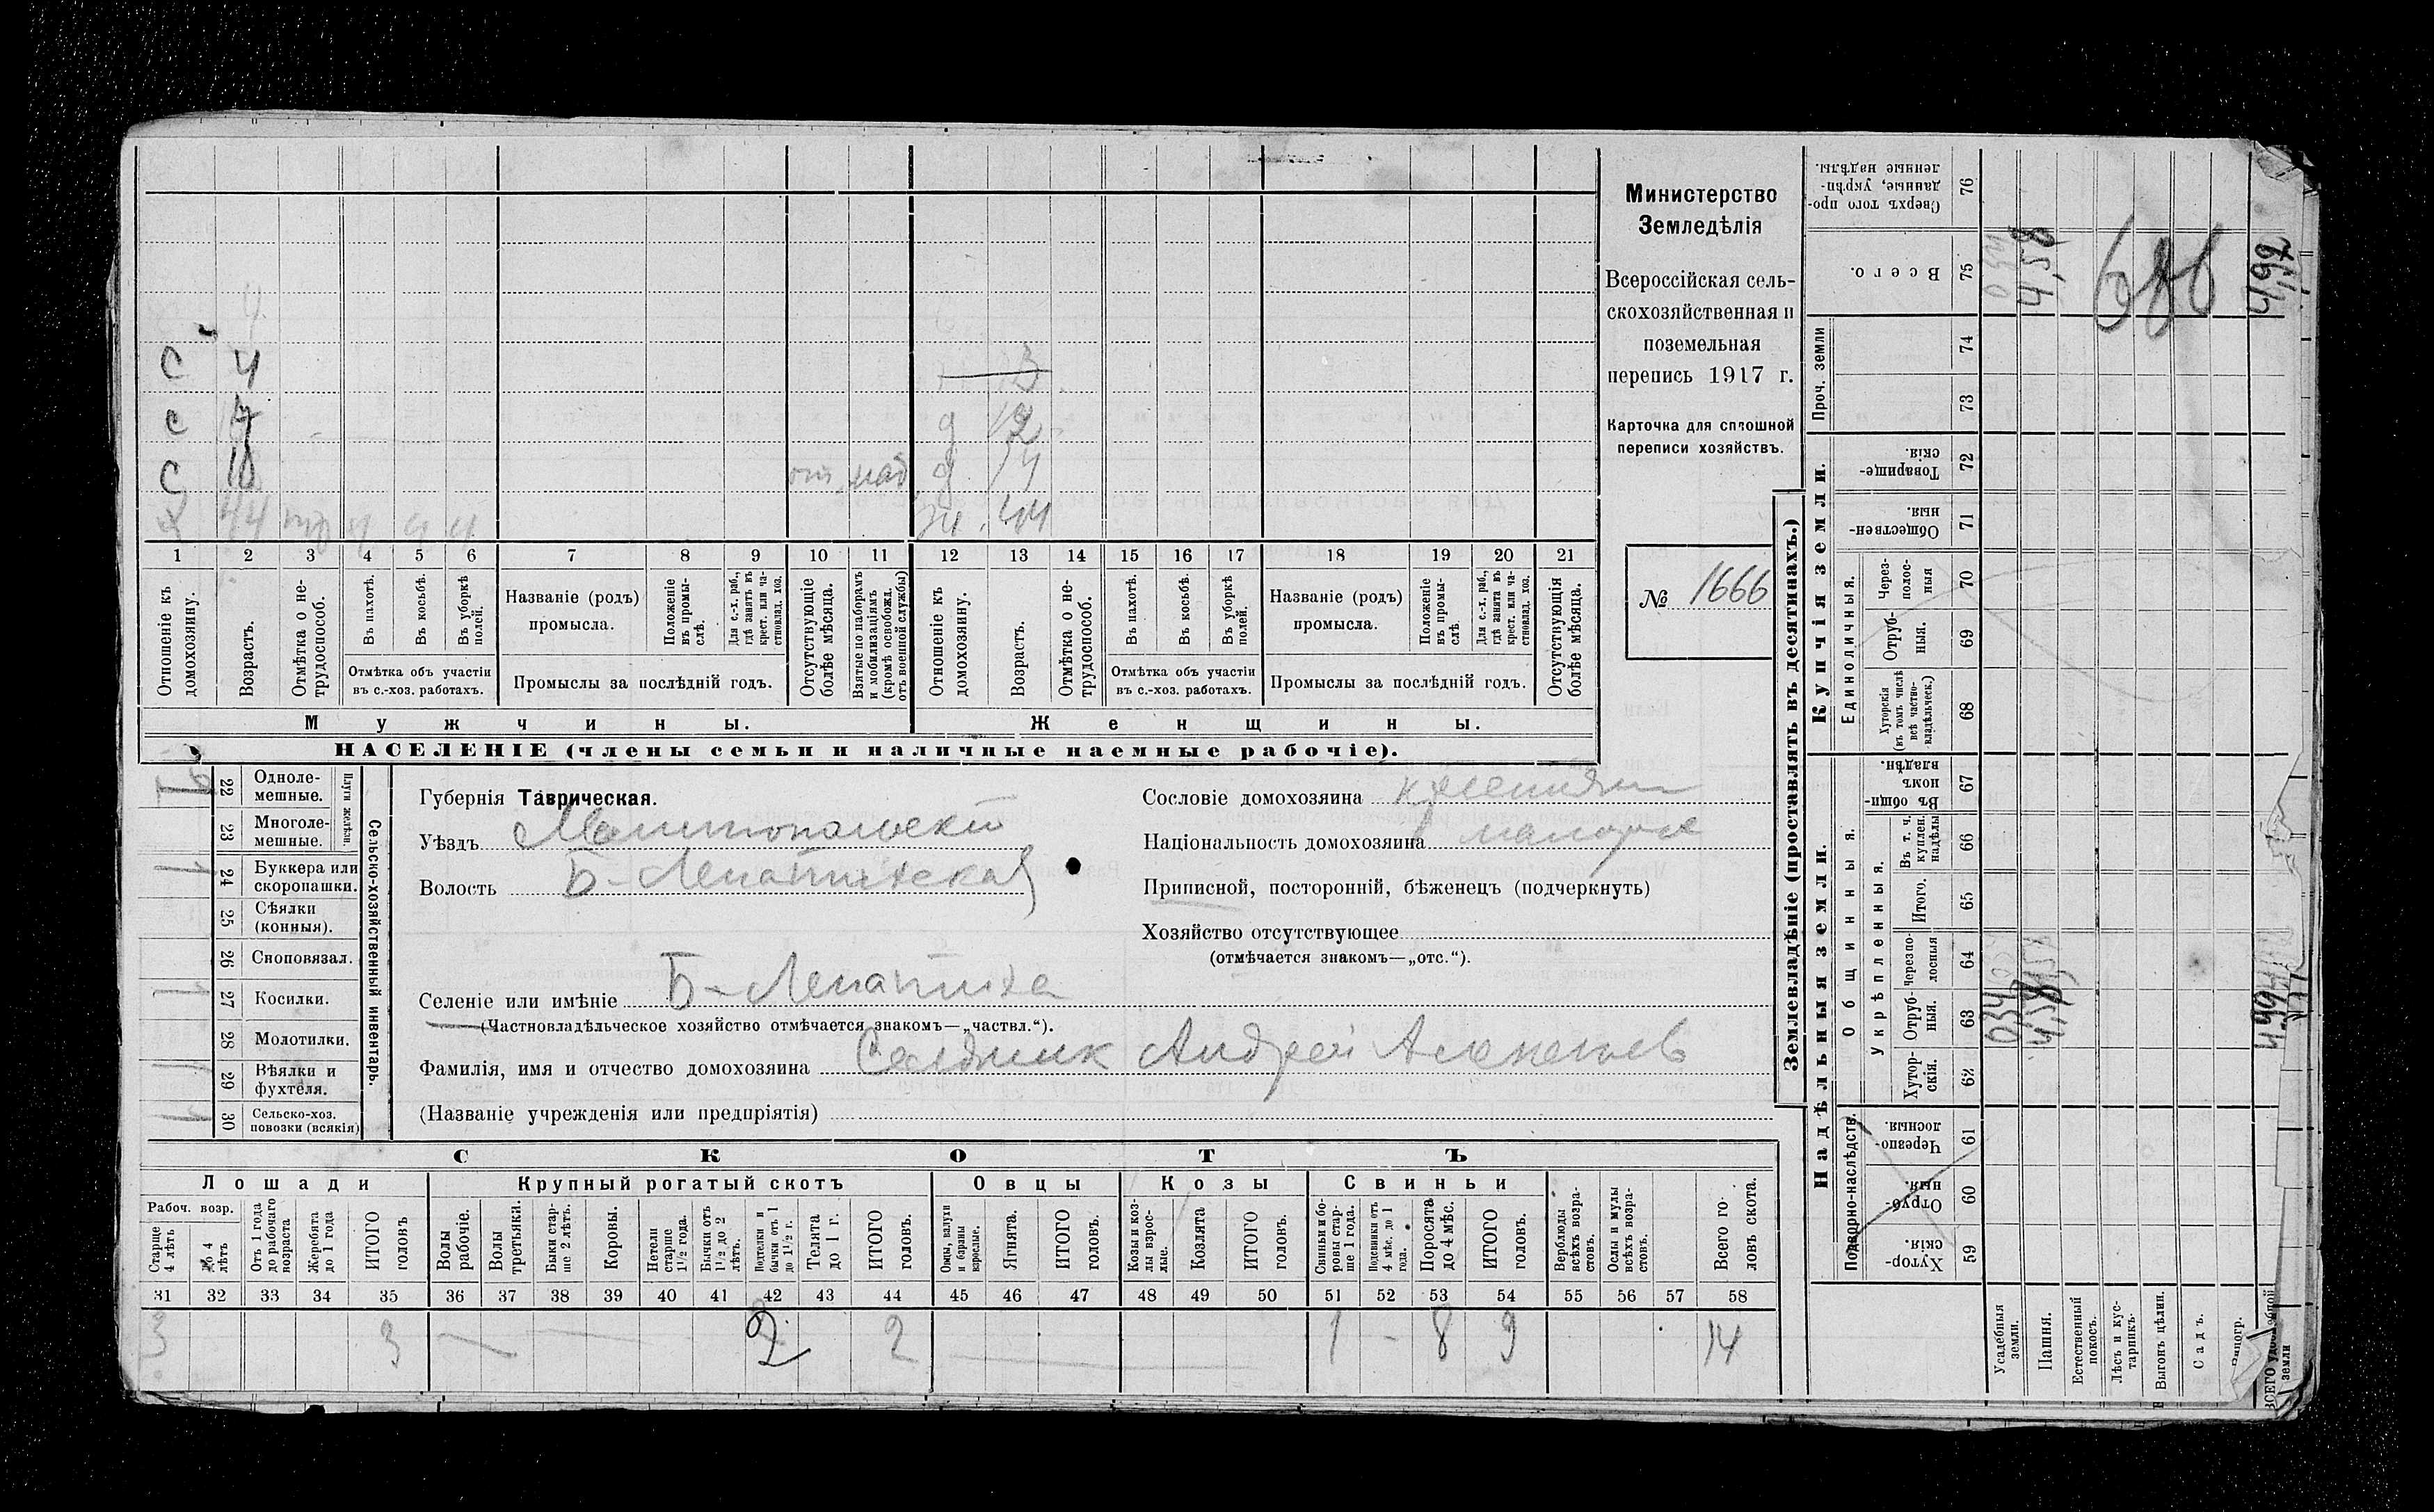 Министерство
Земледѣлія
Всероссійская сель-
скохозяйственная и
поземельная
перепись 1917 г.
Карточка для сплошной
переписи хозяйствъ.
№ 1666
с 4
с 7
с 10
44
от. моб.
3
д 12
д. 14
ж. 44
1 2 3 4 5 6 7 8 9 10 11 12 13 14 15 16 17 18 19 20 21
Отношеніе къ домохозяину.
Возрастъ.
Отмѣтка о не-
трудоспособ.
Въ пахотѣ.
Въ косьбѣ.
Въ уборкѣ полей.
Отмѣтка объ участіи
въ с.-хоз. работахъ.
Названіе (родъ)
промысла.
Положеніе въ промы-
слѣ.
Для с.-х. раб., гдѣ занятъ въ крест. или ча-
стновлад. хоз.
Промыслы за послѣдній годъ.
Отсутствующіе болѣе мѣсяца.
Взятые по наборамъ и мобилизаціямъ (кромѣ освобожд. отъ военной службы)
Отношеніе къ домохозяину.
Возрастъ.
Отмѣтка о не-
трудоспособ.
Въ пахотѣ.
Въ косьбѣ.
Въ уборкѣ полей.
Отмѣтка объ участіи
въ с.-хоз. работахъ.
Названіе (родъ)
промысла.
Положеніе въ промы-
слѣ
Для с.-х. раб., гдѣ занята въ крест. или ча-
стновлад. хоз.
Промыслы за послѣдній годъ.
Отсутствующія болѣе мѣсяца.
Мужчины.
Женщины.
НАСЕЛЕНІЕ (члены семьи и наличные наемные рабочіе).
22 Одноле-
мешные.
23 Многоле-
мешные.
Плуги желѣзн.
24 Буккера или
скоропашки.
25 Сѣялки
(конныя).
26 Сноповязал.
27 Косилки.
28 Молотилки.
29 Вѣялки и
фухтеля.
30 Сельско-хоз.
повозки (всякія)
Сельско-хозяйственный инвентарь.
Губернія Таврическая.
Уѣздъ Мелитопольскій
Волость Б-Лепатихская
Селеніе или имѣніе Б-Лепатиха
(Частновладѣльческое хозяйство отмѣчается знакомъ—„частвл.“).
Фамилія, имя и отчество домохозяина Андрей Алексеевъ
(Названіе учрежденія или предпріятія)
Сословіе домохозяина крестьян
Національность домохозяина малорос
Приписной, посторонній, бѣженецъ (подчеркнуть)
Хозяйство отсутствующее
(отмѣчается знакомъ—„отс.“).
СКОТЪ
Лошади
Крупный рогатый скотъ
Овцы
Козы
Свиньи
Рабоч. возр.
Старше 4 лѣтъ
До 4 лѣтъ
Отъ 1 года до рабочаго возраста
Жеребята до 1 года
ИТОГО головъ
Волы рабочіе.
Волы третьяки.
Быки стар-
ше 2 лѣтъ.
Коровы.
Нетели старше 1½ года.
Бычки отъ 1½ до 2 лѣтъ.
Подтелки и бычки отъ 1 до 1½ г.
Телята до 1 г.
ИТОГО головъ.
Овцы, валухи и бараны взрослые.
Ягнята.
ИТОГО головъ.
Козы и коз-
лы взрос-
лые.
Козлята
ИТОГО головъ.
Свиньи и бо-
ровы стар-
ше 1 года.
Подсвинки отъ 4 мѣс. до 1 года.
Поросята до 4 мѣс.
ИТОГО головъ.
Верблюды всѣхъ возра-
стовъ.
Ослы и мулы всѣхъ возра-
стовъ.
Всего го-
ловъ скота.
31 32 33 34 35 36 37 38 39 40 41 42 43 44 45 46 47 48 49 50 51 52 53 54 55 56 57 58
3 3 — — 2 2 1 - 8 9 14
Землевладѣніе (проставлять въ десятинахъ.)
Надѣльныя земли.
Купчія земли.
Проч. земли
Подворно-наслѣдств.
Общинныя.
Укрѣпленныя.
Единоличныя.
Хутор-
скія. 59
Отруб-
ныя. 60
Черезпо-
лосныя. 61
Хутор-
скія. 62
Отруб-
ныя. 63
Черезпо-
лосныя 64
Итого. 65
Въ т. ч. куплен. надѣлы 66
Въ общи-
номъ владѣн. 67
Хуторскія (въ томъ числѣ всѣ частно-
владѣльческ.) 68
Отруб-
ныя. 69
Через-
полос-
ныя 70
Обществен-
ныя. 71
Товарище-
скія. 72
73
74
Всего. 75
Сверхъ того про-
данные, укрѣп-
ленные надѣлы. 76
Усадебныя земли.
Пашня.
Естественный покосъ.
Лѣсъ и кус-
тарникъ.
Выгонъ цѣлин.
Садъ.
034
4,58
4,58
686
4,92